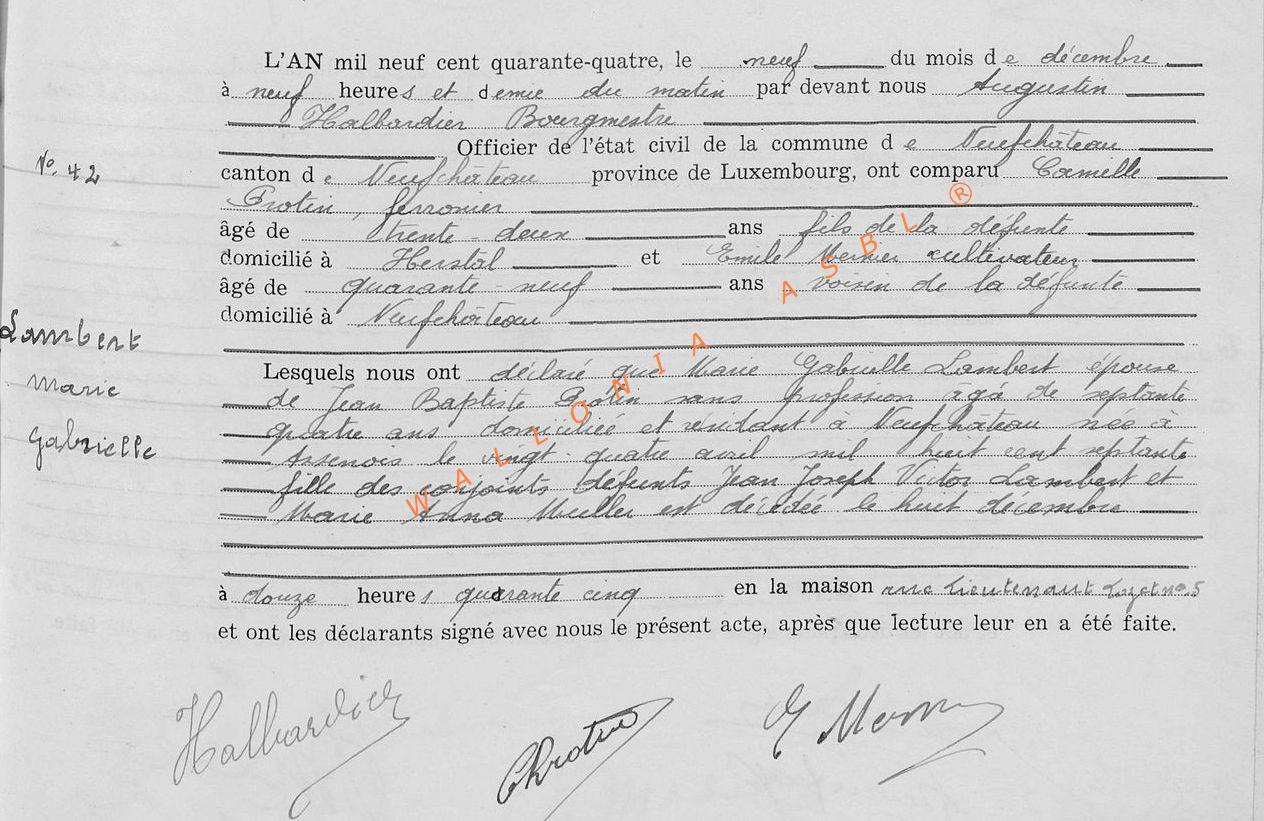 L'AN mil neuf cent quarante-quatre, le neuf du mois de décembre
à neuf heures et demie du matin par devant nous Augustin
Halbardier Bourgmestre
Officier de l'état civil de la commune de Neufchâteau
No. 42
canton de Neufchâteau province de Luxembourg, ont comparu Camille
Protin, ferronier
âgé de trente-deux ans fils de la défunte
domicilié à Herstal et Emile Mernier cultivateur
âgé de quarante-neuf ans voisin de la défunte
domicilié à Neufchâteau
Lambert
Marie
Gabrielle
Lesquels nous ont déclaré que Marie Gabrielle Lambert épouse
de Jean Baptiste Protin sans profession âgée de septante
quatre ans domiciliée et résidant à Neufchâteau née à
Assenois le vingt-quatre avril mil huit cent septante
fille des conjoints défunts Jean Joseph Victor Lambert et
Marie Anna Muller est décédée le huit décembre
à douze heures quarante cinq en la maison rue Lieutenant no. 5
et ont les déclarants signé avec nous le présent acte, après que lecture leur en a été faite.
Halbardier
CProtin
E Mernier
WALLONIA ASBL ®